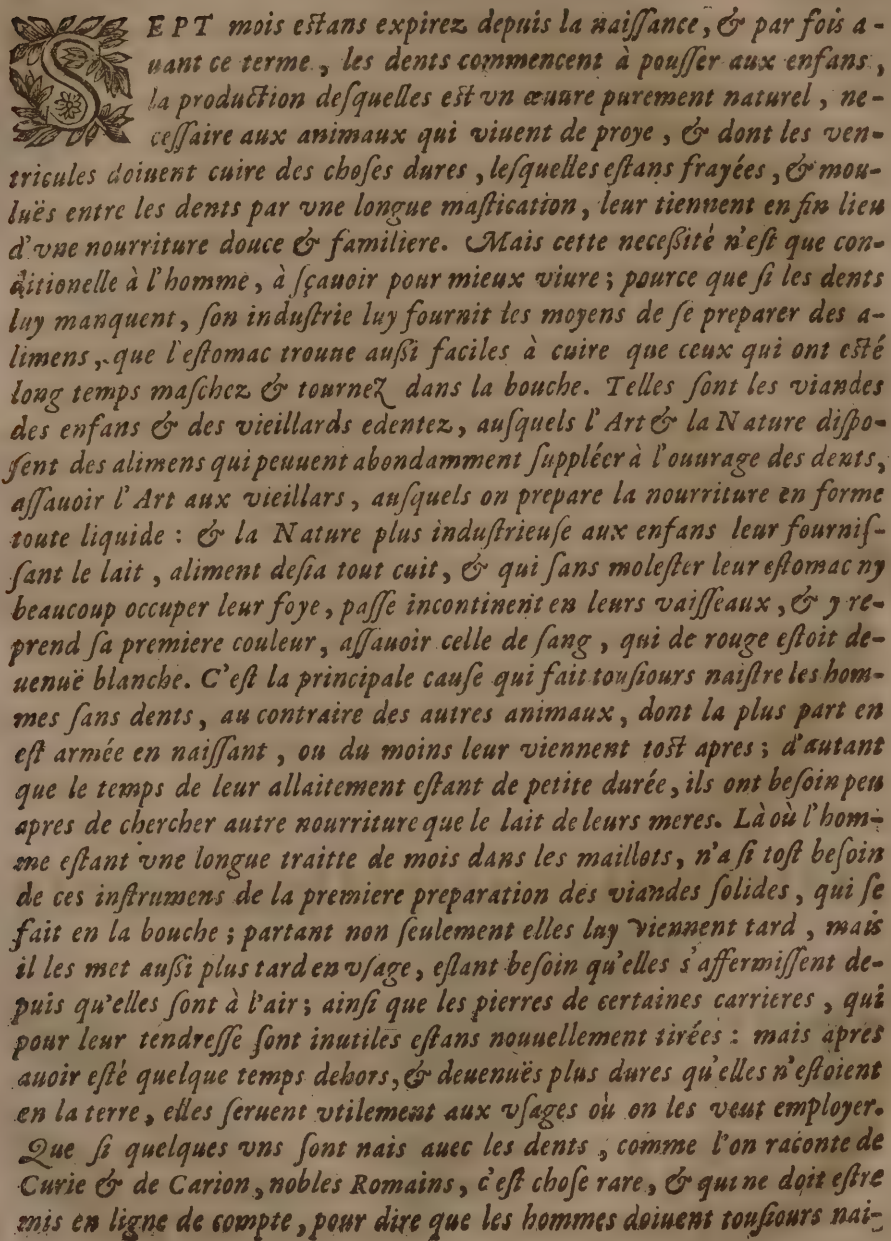 SEPT mois eſtans expirez depuis la naiſſance, & par fois a-
uant ce terme, les dents commencent à pouſſer aux enfans,
la production deſquelles eſt vn œuure purement naturel, ne-
ceſſaire aux animaux qui viuent de proye, & dont les ven-
tricules doiuent cuire des choſes dures, leſquelles eſtans frayées, & mou-
luës entre les dents par vne longue maſtication, leur tiennent en fin lieu
d'vne nourriture douce & familiere. Mais cette neceſſité n'eſt que con-
ditionelle à l'homme, à ſçauoir pour mieux viure; pource que ſi les dents
luy manquent, ſon induſtrie luy fournit les moyens de ſe preparer des a-
limens, que l'eſtomac trouue auſſi faciles à cuire que ceux qui ont eſté
long temps maſchez & tournez dans la bouche. Telles ſont les viandes
des enfans & des vieillards edentez, auſquels l'Art & la Nature diſpo-
ſent des alimens qui peuuent abondamment ſuppléer à l'ouurage des dents,
aſſauoir l'Art aux vieillars, auſquels on prepare la nourriture en forme
toute liquide: & la Nature plus induſtrieuſe aux enfans leur fourniſ-
ſant le lait, aliment deſia tout cuit, & qui ſans moleſter leur eſtomac ny
beaucoup occuper leur foye, paſſe incontinent en leurs vaiſſeaux, & y re-
prend ſa premiere couleur, aſſauoir celle de ſang, qui de rouge eſtoit de-
uenuë blanche. C'eſt la principale cauſe qui fait touſiours naiſtre les hom-
mes ſans dents, au contraire des autres animaux, dont la plus part en
eſt armée en naiſſant, ou du moins leur viennent toſt apres; d'autant
que le temps de leur allaitement eſtant de petite durée, ils ont beſoin peu
apres de chercher autre nourriture que le lait de leurs meres. Là où l'hom-
me eſtant vne longue traitte de mois dans les maillots, n'a ſi toſt beſoin
de ces inſtrumens de la premiere preparation des viandes ſolides, qui ſe
fait en la bouche; partant non ſeulement elles luy viennent tard, mais
il les met auſſi plus tard en vſage, eſtant beſoin qu'elles s'affermiſſent de-
puis qu'elles ſont à l'air; ainſi que les pierres de certaines carrieres, qui
pour leur tendreſſe ſont inutiles eſtans nouuellement tirées: mais apres
auoir eſté quelque temps dehors, & deuenuës plus dures qu'elles n'eſtoient
en la terre, elles ſeruent vtilement aux vſages où on les veut employer.
Que ſi quelques vns ſont nais auec les dents, comme l'on raconte de
Curie & de Carion, nobles Romains, c'eſt choſe rare, & qui ne doit eſtre
mis en ligne de compte, pour dire que les hommes doiuent touſiours nai-